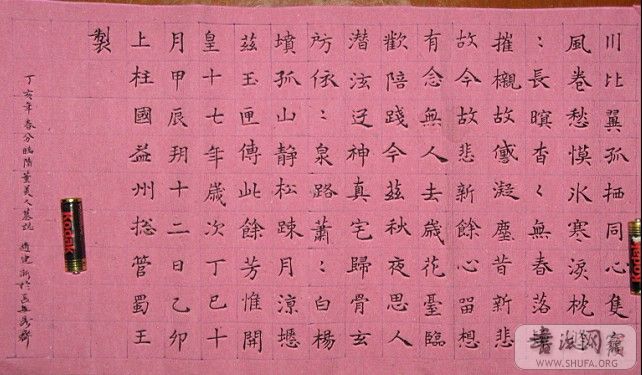 川比翼孤栖同心隻
風卷愁愰氷寒淚枕
：長暝杳〻無春落
摧櫬故黛凝塵昔新悲
故今故悲新餘心留想
有念無人去歲花臺臨
歡陪踐今茲秋夜思人
潛泫迂神真宅歸骨玄
房依：泉路蕭：白楊
墳孤山静松踈月涼瘞
茲玉匣傳此餘芳惟開
皇十七年歲次丁巳十
月甲辰朔十二日乙卯
上柱國益州揔管蜀王
製
丁亥年春分臨隋董美人墓誌
Kodak
书法网
WWW.SHUFA.ORG